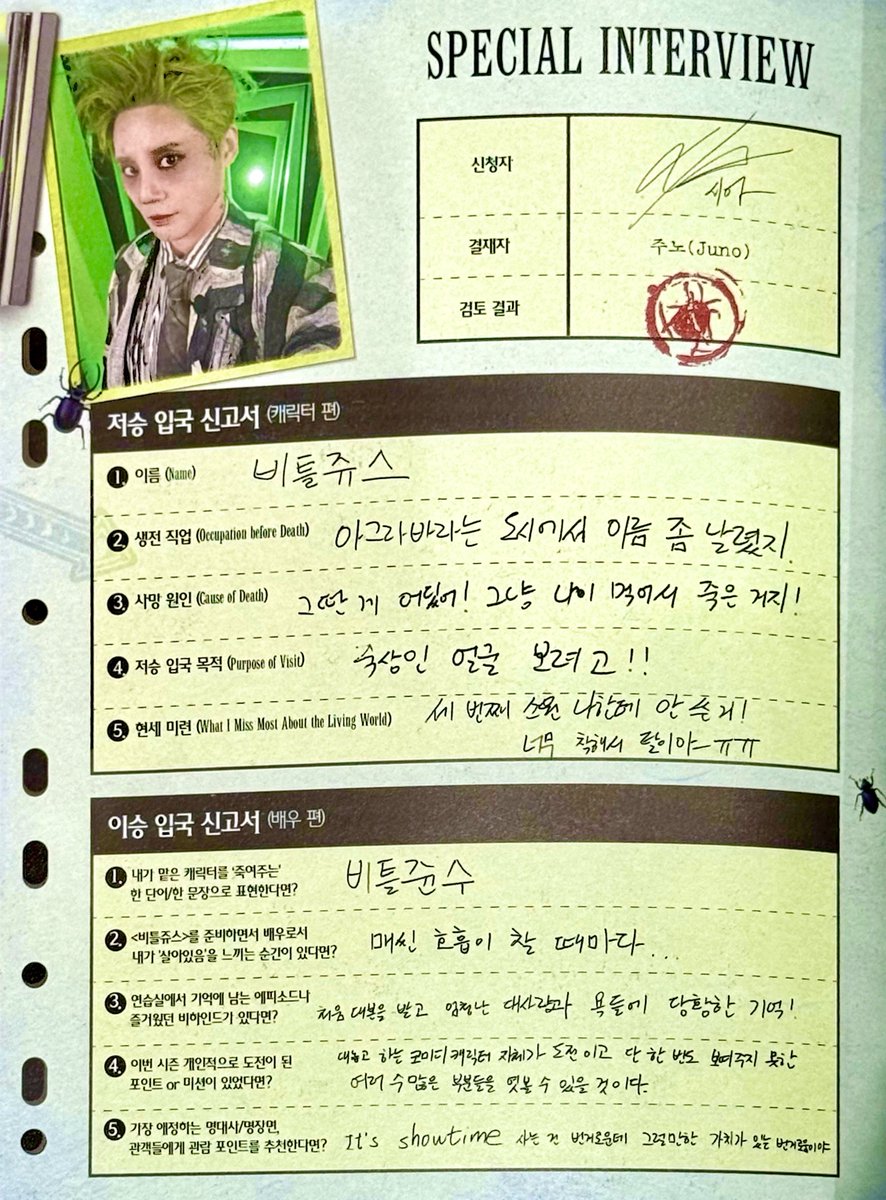 SPECIAL INTERVIEW
신청자
시아
결재자 주노(Juno)
검토 결과
저승 입국 신고서 (캐릭터 편)
1. 이름 (Name) 비틀쥬스
2. 생전 직업 (Occupation before Death) 아그라바라는 도시에서 이름 좀 날렸지.
3. 사망 원인 (Cause of Death) 그딴 게 어딨어! 그냥 나이 먹어서 죽은 거지!
4. 저승 입국 목적 (Purpose of Visit) 죽상인 얼굴 보려고!!
5. 현세 미련 (What I Miss Most About the Living World) 세 번째 소원 나한테 안 쓴 거!
너무 착해서 탈이야 ㅠㅠ
이승 입국 신고서 (배우 편)
1. 내가 맡은 캐릭터를 '죽여주는'
한 단어/한 문장으로 표현한다면? 비틀쥰수
2. <비틀쥬스>를 준비하면서 배우로서
내가 '살아있음'을 느끼는 순간이 있다면? 매씬 호흡이 찰 때마다...
3. 연습실에서 기억에 남는 에피소드나
즐거웠던 비하인드가 있다면? 처음 대본을 받고 엄청난 대사량과 욕들에 당황한 기억!
4. 이번 시즌 개인적으로 도전이 된
포인트 or 미션이 있었다면? 대놓고 하는 코미디 캐릭터 자체가 도전이고 단 한 번도 보여주지 못한
여러 수많은 부분들을 엿볼 수 있을 것이다.
5. 가장 애정하는 명대사/명장면,
관객들에게 관람 포인트를 추천한다면? It's showtime 사는 건 번거로운데 그럴만한 가치가 있는 번거로움이야